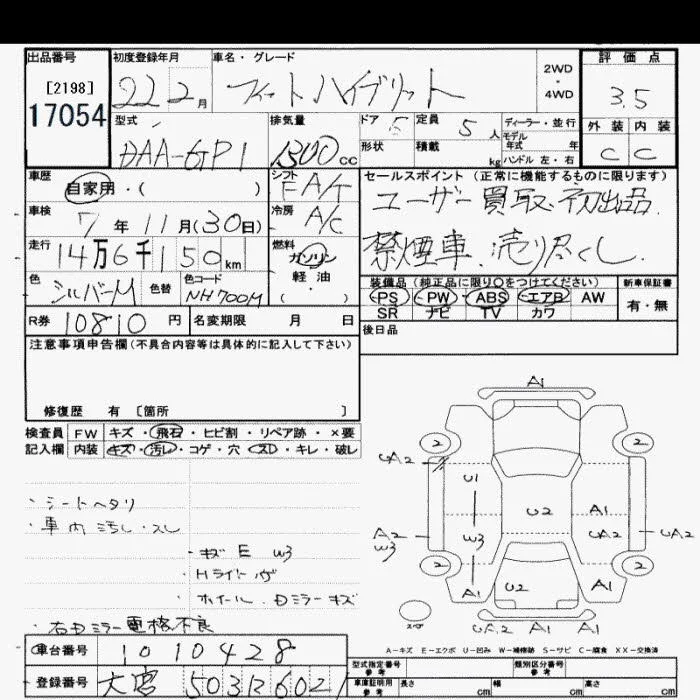 出品番号
[2198]
17054
初度登録年月
22 2月
車名・グレード
フィットハイブリット
2WD
・
4WD
評価点
3.5
外装 内装
C C
型式
DAA-GP1
排気量
1300cc
ドア 5
形状
定員 5人
積載 kg
ディーラー・並行
モデル
年式 年
ハンドル 左・右
車歴
自家用・( )
シフト
FA/T
車検
7年11月(30日)
冷房
A/C
走行
14万6千150km
燃料
ガソリン
軽油
( ・ )
色
シルバーM
色替
色コード
NH700M
セールスポイント (正常に機能するものに限ります)
ユーザー買取、初出品、
禁煙車、売り尽くし、
装備品 (純正品に限り〇をつけてください)
PS PW ABS エアB AW
SR ナビ TV カワ
新車保証書
有・無
R券 10810円
名変期限 月 日
後日品
注意事項申告欄(不具合内容等は具体的に記入して下さい)
修復歴 有 [箇所 ]
検査員 FW キズ・飛石・ヒビ割・リペア跡・×要
記入欄 内装 キズ・汚レ・コゲ・穴・スレ・キレ・破レ
・シートヘタリ
・車内汚レ・スレ
・キズ E W3
・Hライトハゲ
・ホイール、Dミラーキズ
・右Dミラー電格不良
A1
2 2
UA2
U1
U2
A1
A2
W3
W3
UA2
UA2
2 2
A1
U2
A1
スペア
UA2 A1 A1
A-キズ E-エクボ U-凹み W-補修跡 S-サビ C-腐食 XX-交換済
車台番号 1010428
登録番号 大宮 503
型式指定番号
参考
類別区分番号
参考
車庫証明用
参考
長さ cm
幅 cm
高さ cm